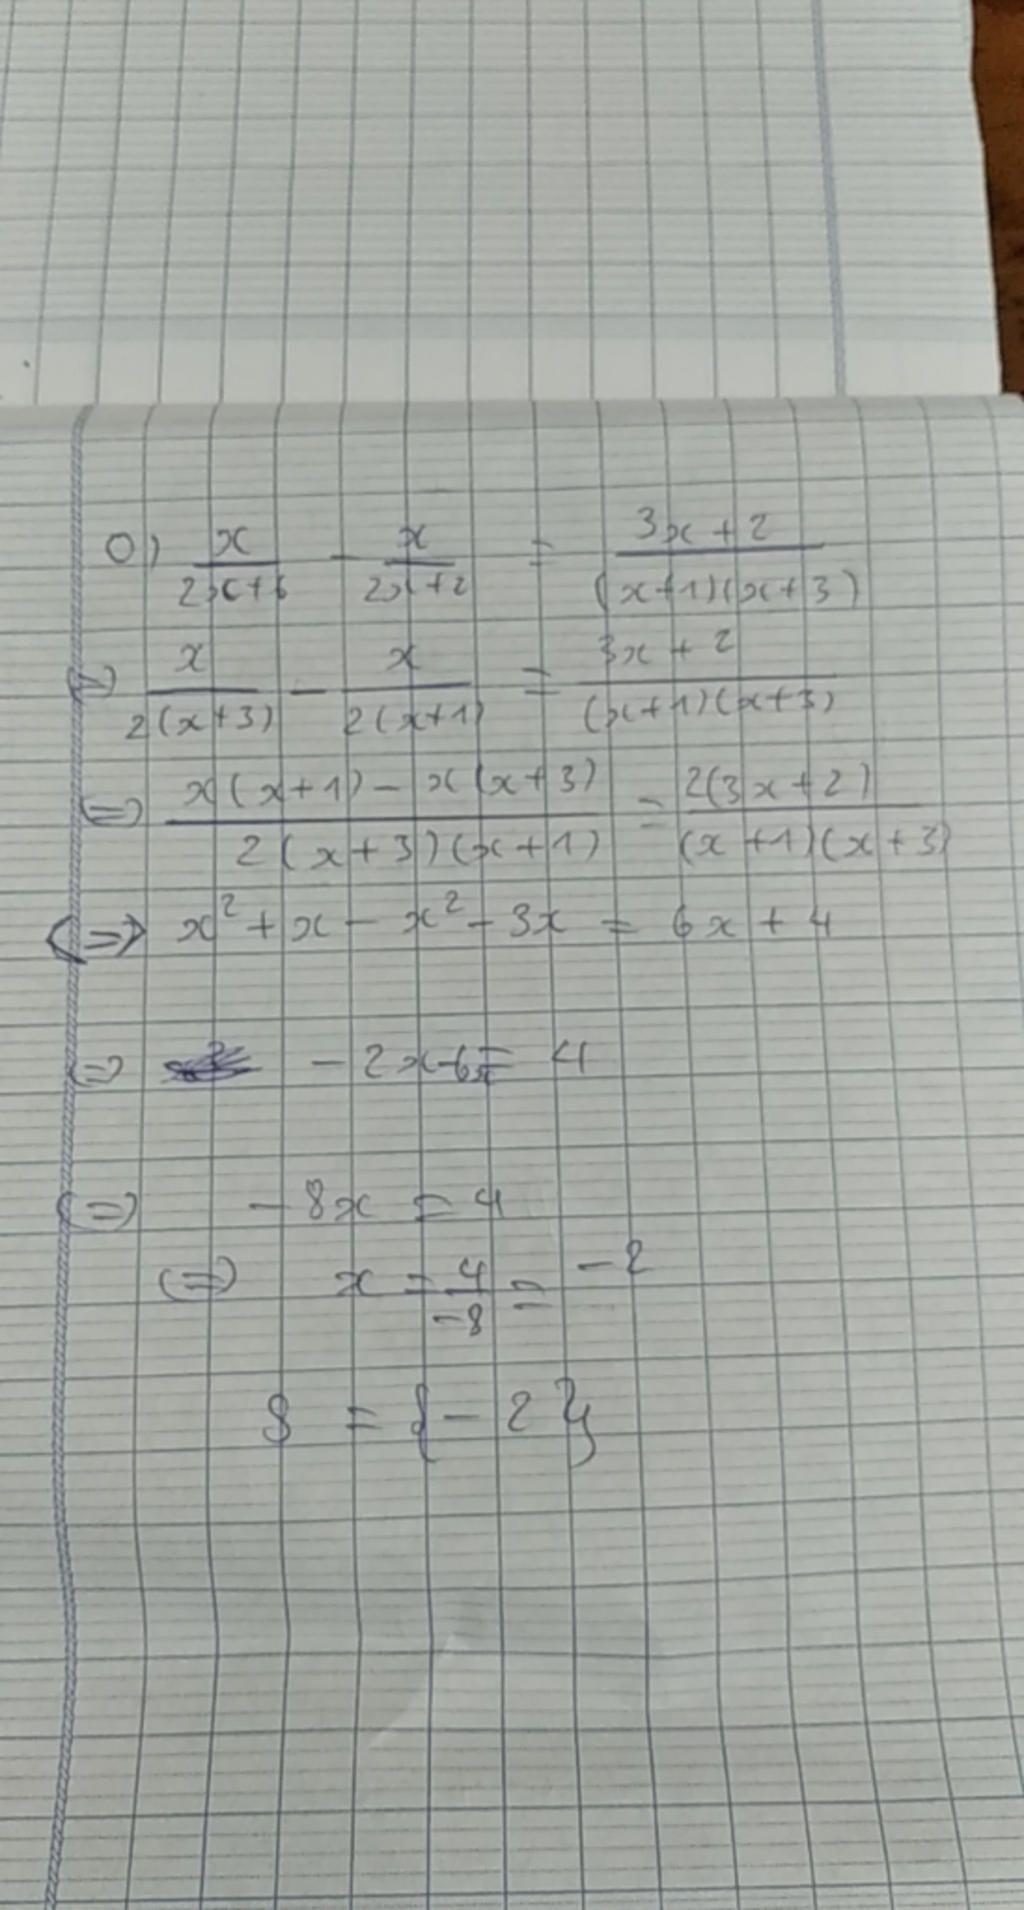 o) x/(2x+6) - x/(2x+2) = (3x+2)/((x+1)(x+3))
(=) x/(2(x+3)) - x/(2(x+1)) = (3x+2)/((x+1)(x+3))
(=) (x(x+1) - x(x+3))/(2(x+3)(x+1)) = 2(3x+2)/((x+1)(x+3))
<=> x² + x - x² - 3x = 6x + 4
(=) -2x-6x = 4
(=) -8x = 4
(=) x = 4/-8 = -2
S = {-2}